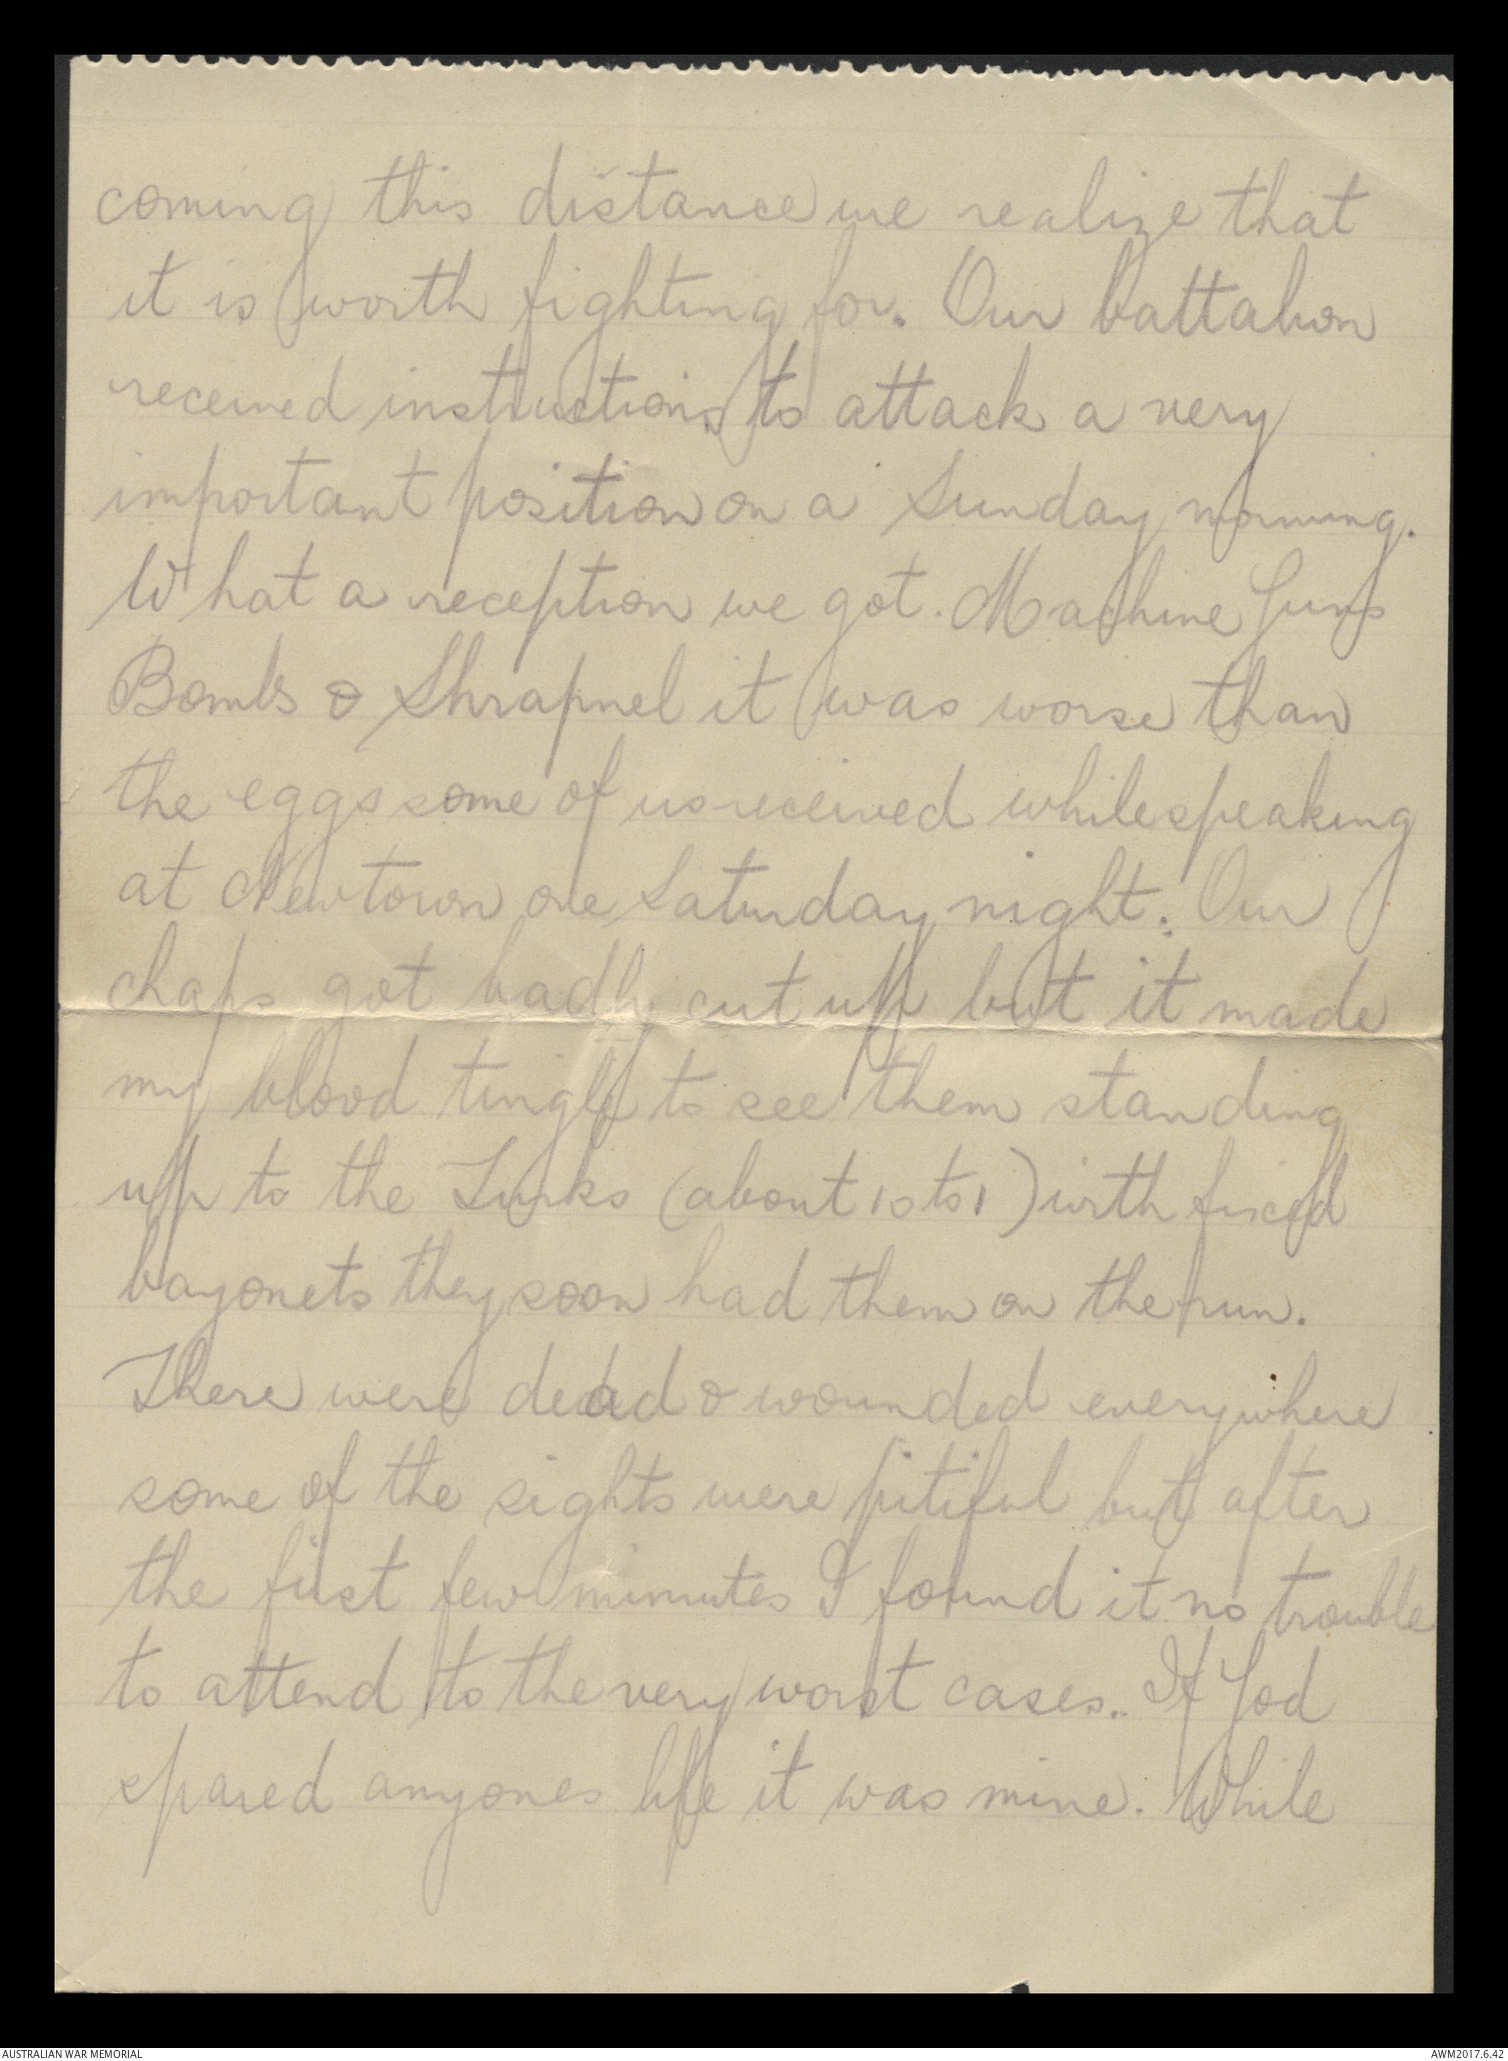 coming this distance we realize that
it is worth fighting for. Our battalion
received instructions to attack a very
important position on a Sunday morning.
What a reception we got. Machine Guns
Bombs & Shrapnel it was worse than
the eggs some of us received while speaking
at Newtown one Saturday night. Our
chaps got badly cut up but it made
my blood tingle to see them standing
up to the Turks (about 10 to 1) with fixed
bayonets they soon had them on the run.
There were dead & wounded everywhere
some of the sights were pitiful but after
the first few minutes I found it no trouble
to attend to the very worst cases. If God
spared anyones life it was mine. While
AUSTRALIAN WAR MEMORIAL
AWM2017.6.42